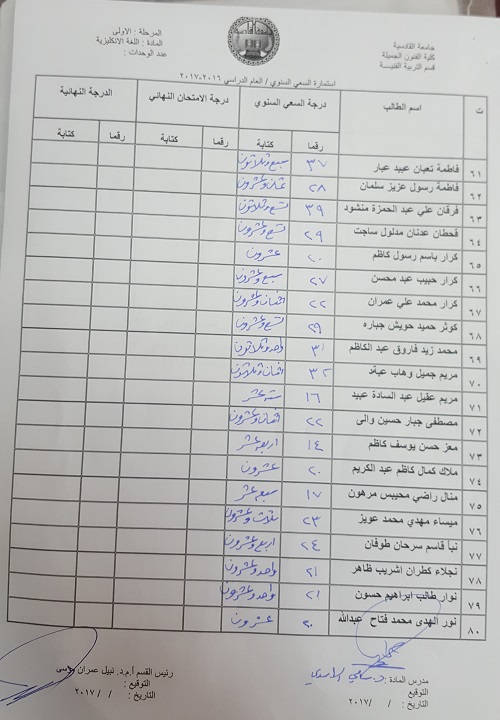 جامعة القادسية
كلية الفنون الجميلة
قسم التربية الفنية
المرحلة : الاولى
المادة : اللغة الانكليزية
عدد الوحدات :
استمارة السعي السنوي / العام الدراسي ٢٠١٦-٢٠١٧
ت اسم الطالب درجة السعي السنوي درجة الامتحان النهائي الدرجة النهائية
رقما كتابة رقما كتابة رقما كتابة
٦١ فاطمة تعبان عبيد عبار ٣٧ سبع وثلاثون
٦٢ فاطمة رسول عزيز سلمان ٢٨ ثمان وعشرون
٦٣ فرقان علي عبد الحمزة منشود ٣٩ تسع وثلاثون
٦٤ قحطان عدنان مدلول ساجت ٢٩ تسع وعشرون
٦٥ كرار باسم رسول كاظم ٢٠ عشرون
٦٦ كرار حبيب عبد محسن ٢٧ سبع وعشرون
٦٧ كرار محمد علي عمران ٢٢ اثنان وعشرون
٦٨ كوثر حميد حويش جباره ٢٩ تسع وعشرون
٦٩ محمد زيد فاروق عبد الكاظم ٣١ واحد وثلاثون
٧٠ مريم جميل وهاب عبلد ٣٢ اثنان وثلاثون
٧١ مريم عقيل عبد السادة عبيد ١٦ ستة عشر
٧٢ مصطفى جبار حسين والى ٢٢ اثنان وعشرون
٧٣ معز حسن يوسف كاظم ١٤ اربعة عشر
٧٤ ملاك كمال كاظم عبد الكريم ٢٠ عشرون
٧٥ منال راضي محيبس مرهون ١٧ سبعة عشر
٧٦ ميساء مهدي محمد عويز ٢٣ ثلاث وعشرون
٧٧ نبأ قاسم سرحان طوفان ٢٤ اربع وعشرون
٧٨ نجلاء كطران اشريب ظاهر ٢١ واحد وعشرون
٧٩ نوار طالب ابراهيم حسون ٢١ واحد وعشرون
٨٠ نور الهدى محمد فتاح عبدالله ٢٠ عشرون
مدرس المادة :
التوقيع :
التاريخ : / /٢٠١٧
رئيس القسم أ.م.د. نبيل عمران موسى
التوقيع :
التاريخ : / / ٢٠١٧